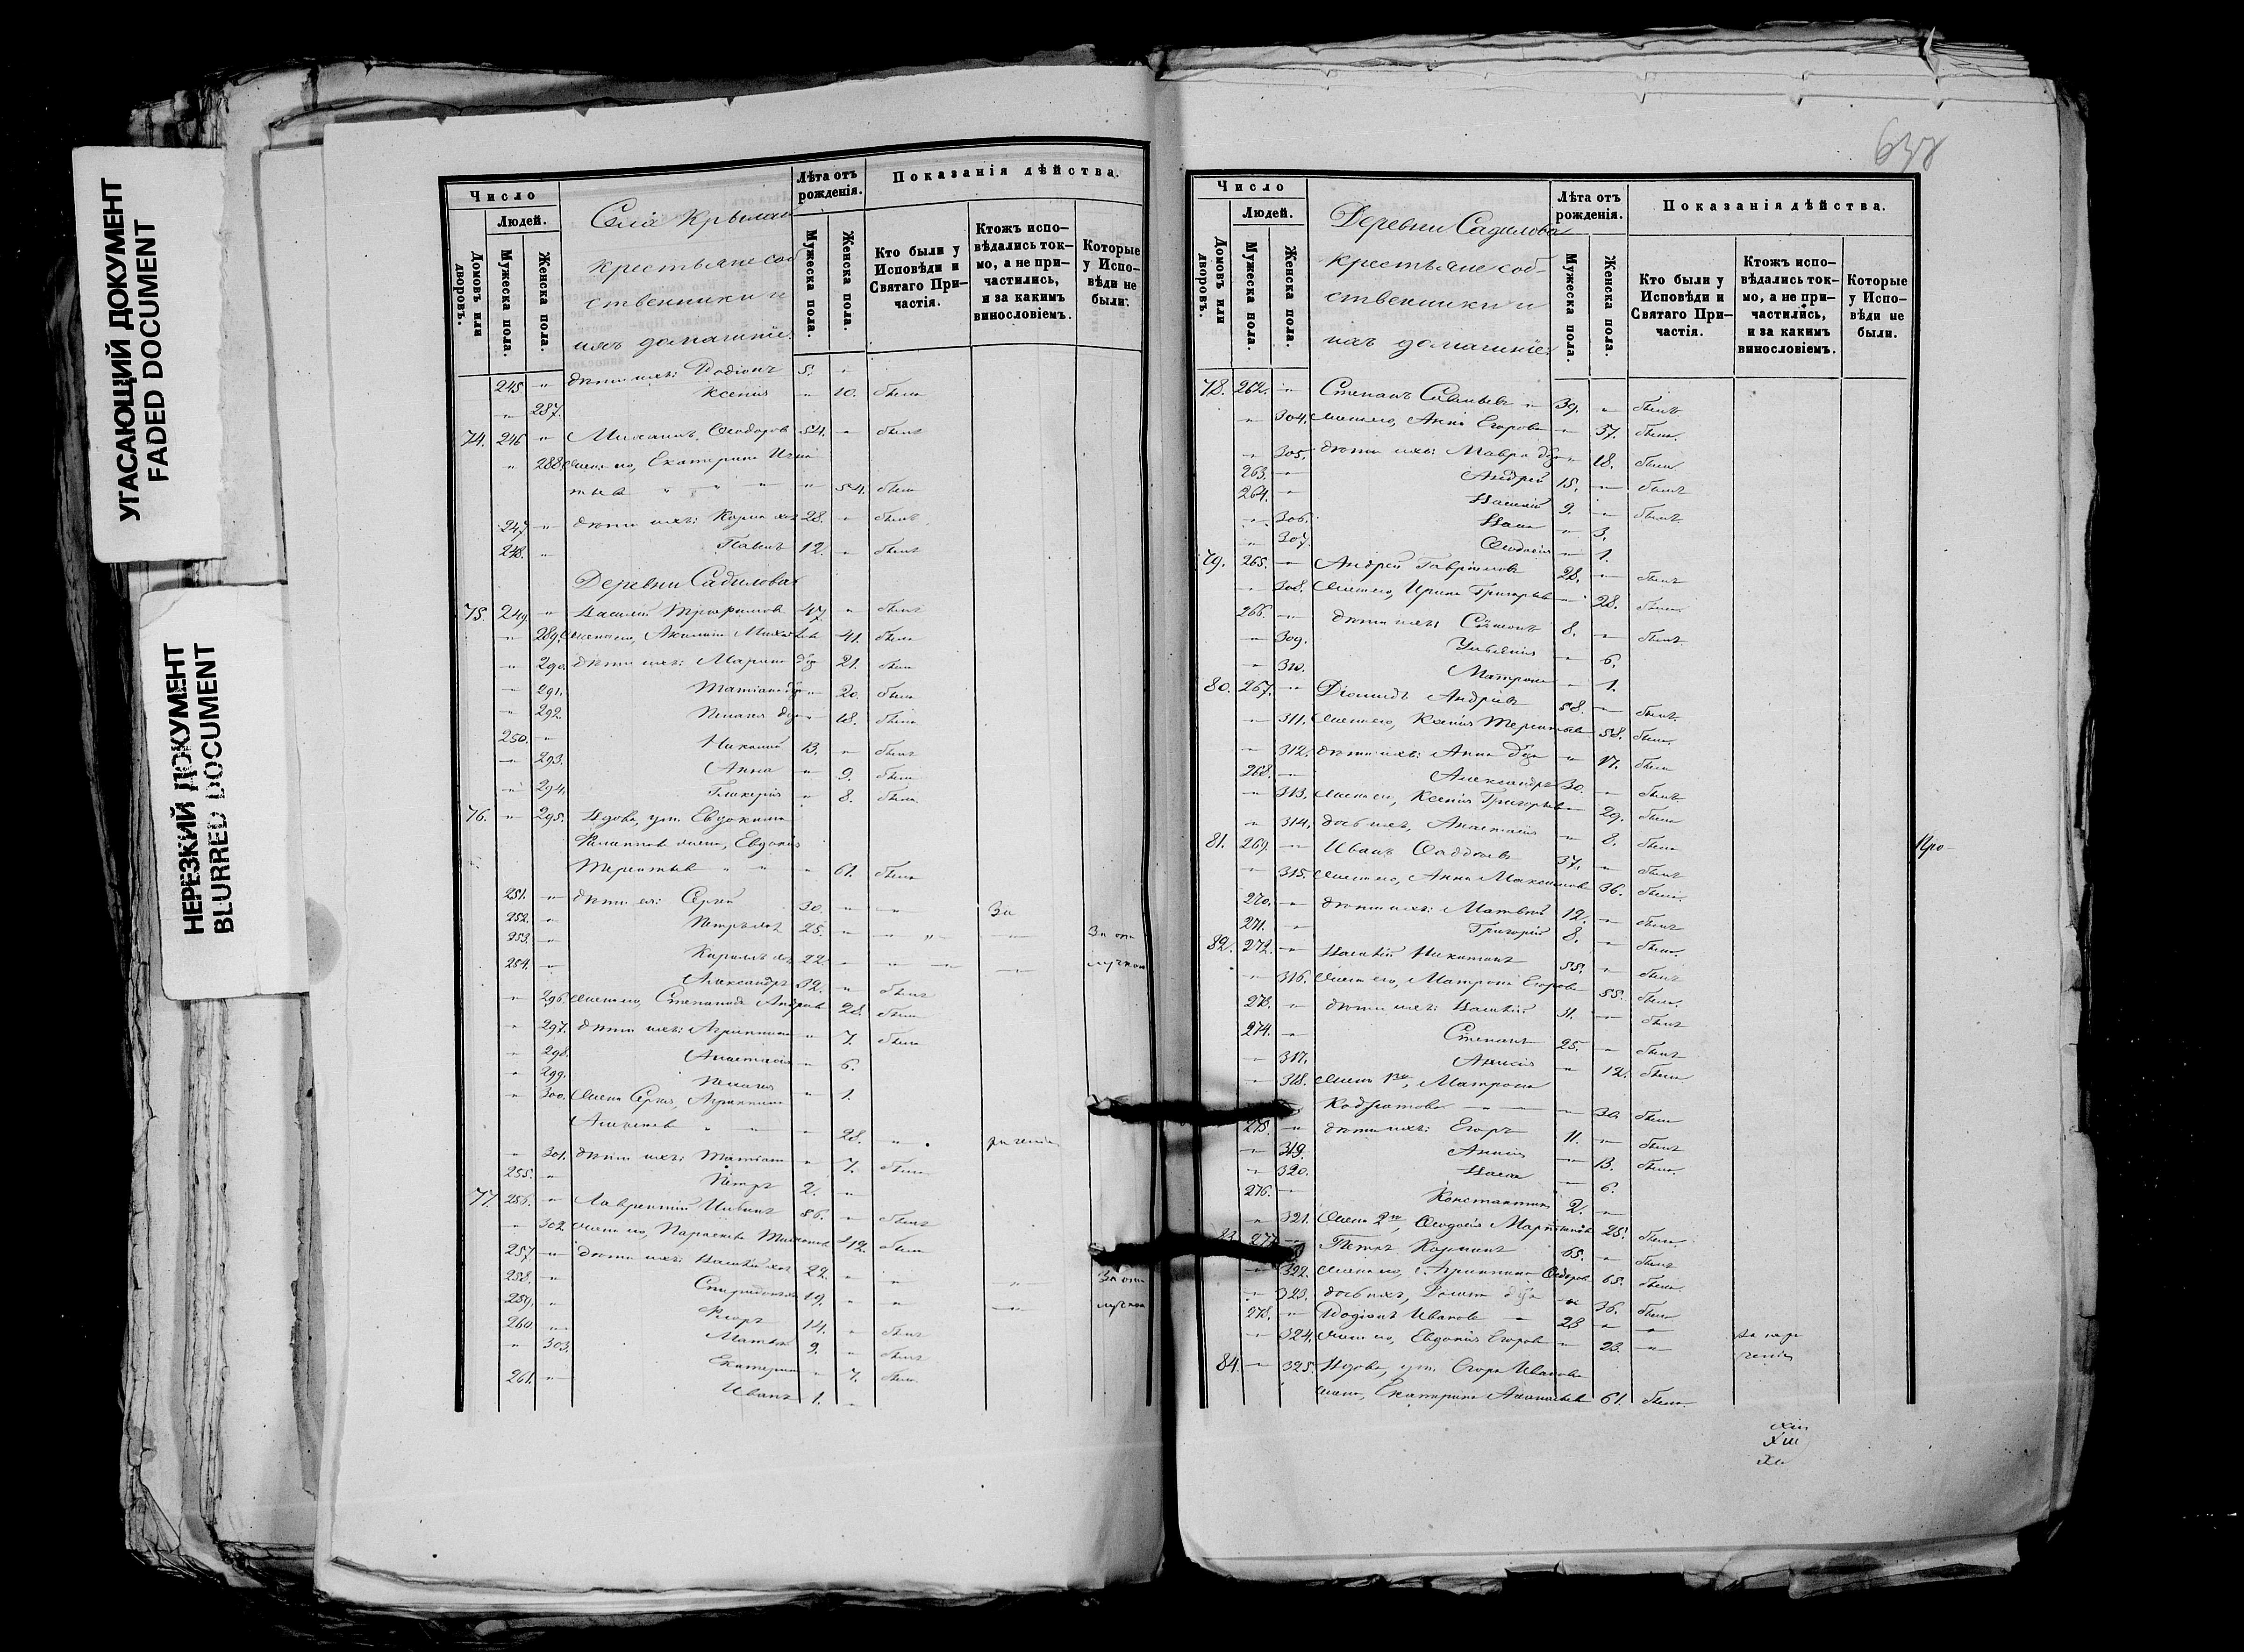 УГАСАЮЩИЙ ДОКУМЕНТ
FADED DOCUMENT
НЕРЕЗКИЙ ДОКУМЕНТ
BLURRED DOCUMENT
Число
Людей.
Домовъ или дворовъ.
Мужеска пола.
Женска пола.
Села
крестьяне соб
ственники и
ихъ домашніе:
Лѣта отъ рожденія.
Мужеска пола.
Женска пола.
Показанія дѣйства.
Кто были у Исповѣди и Святаго Причастія.
Ктожъ исповѣдались токмо, а не причастились, и за какимъ винословіемъ.
Которые у Исповѣди не были.
245 " дѣти ихъ: Родіонъ 5. "
" 287. Ксенія " 10. была
74. 246 " Михаилъ Ѳеодоров 54. " былъ
" 288. жена его, Екатерина Игна
тьева " " " " 54. была
247 " дѣти ихъ: 28. " былъ
248. " Павелъ 12. " былъ
Деревни Садилова
75. 249 " Василій Трофимовъ 47. " былъ
" 289. жена его, Михайлова 41. была
" 290. дѣти ихъ: Марина 21. была
" 291. Татіана " 20. была
" 292. Пелагея " 18. была
250. " Николай 13. " былъ
" 293. Анна " 9. была
" 294. Гликерія " 8. была
76. " 295. Вдова, ум. Евдокима
жена, Евдокія
Терентьева " " " 61. была
251. " дѣти ея: Сергей 30. " " За
252. " Петръ 25. " " " За от
253. " Кирилъ 22. " " " лучкой
254. " Александръ 32. " былъ
" 296. жена его, Степанида Андреева 28. была
" 297. дѣти ихъ: Агрипина " 7. была
" 298. Анастасія " 6.
" 299. Пелагея " 1.
" 300. жена Сергея, Агрипина
Алексѣева " " " 28. "
" 301. дѣти ихъ: Татіана " 7. была
255. " Петръ 2. "
77. 256. " Лаврентій 56. " былъ
" 302. жена его, Параскева была
257. " дѣти ихъ: Василій 22. " " " За от
258. " Спиридонъ 19. " " " лучкой
259. " 14. " былъ
260. " Матвей 9. " былъ
" 303. Екатерина " 7. была
261. " Иванъ 1. "
Число
Людей.
Домовъ или дворовъ.
Мужеска пола.
Женска пола.
Деревни Садилова
крестьяне соб-
ственники и
ихъ домашніе:
Лѣта отъ рожденія.
Мужеска пола.
Женска пола.
Показанія дѣйства.
Кто были у Исповѣди и Святаго Причастія.
Ктожъ исповѣдались токмо, а не причастились, и за какимъ винословіемъ.
Которые у Исповѣди не были.
78. 262. " Степанъ Савельевъ " 39. " былъ
" 304. жена его, Анна Егорова " 37. была
" 305. дѣти ихъ: Мавра " 18. была
263. " Андрей 15. " былъ
264. " Василій 9. " былъ
" 306. " 3.
" 307. Ѳеодосія " 1.
79. 265. " Андрей Гавріиловъ 28. " былъ
" 308. жена его, Ирина Григорьева " 28. была
266. " дѣти ихъ: Сѵмеонъ 8. " былъ
" 309. Ульянія " 6.
" 310. Матрона " 1.
80. 267. " Діомидъ Андреевъ 58. " былъ
" 311. жена его, Ксенія Терентьева 58. была
" 312. дѣти ихъ: Анна " 17. была
268. " Александръ 30. " былъ
" 313. жена его, Ксенія Григорьева 29. была
" 314. дочь ихъ, Анастасія " 8. была
81. 269. " Иванъ Ѳаддеевъ 37. " былъ
" 315. жена его, Анна Максимова 36. была
270. " дѣти ихъ: Матвей 12. " былъ
271. " Григорій 8. " былъ
82. 272. " Василій Никитинъ 55. " былъ
" 316. жена его, Матрона Егорова 55. была
273. " дѣти ихъ: Василій 31. " былъ
274. " Степанъ 25. " былъ
" 317. " 12. была
" 318. жена 1го, Матрона
Кодратова " " 30. была
275. " дѣти ихъ: Егоръ 11. " былъ
" 319. " 13. была
" 320. " 6.
276. " Константинъ 2. "
" 321. жена 2го, Ѳеодосія 25. была
83. 277 " Петръ 65. " былъ
" 322. жена его, Агрипина Ѳедорова 65. была
" 323. дочь ихъ, " 36. была
278. " Родіонъ Ивановъ " 28 " "
" 324. жена его, Евдокія Егорова " 23. "
84. " 325. Вдова, ум. Егора Иванова
жена, Екатерина 61. была